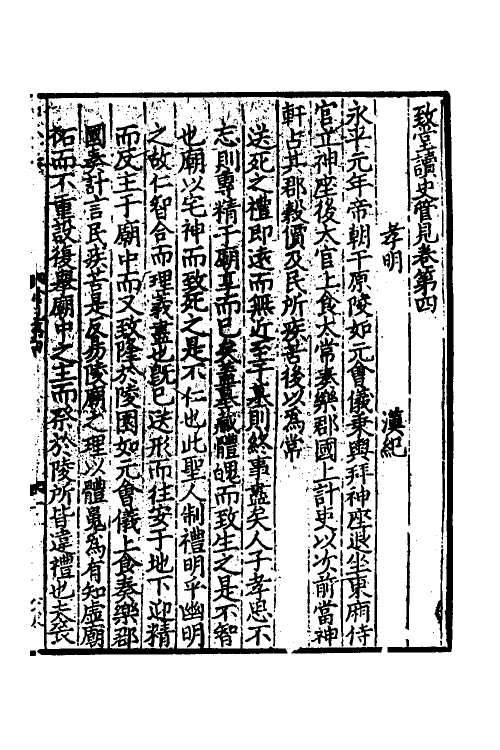 致堂讀史管見卷第四
孝明　漢紀
永平元年帝朝于原陵如元會儀乘輿拜神座退坐東廂侍
官立神座後大官上食太常奏樂郡國上計吏以次前當神
軒占其郡穀價及民所疾苦後以為常
送死之禮即遠而無近至于墓則終事盡矣人子孝忠不
忘則專精于廟享而已矣蓋墓藏體魄而致生之是不智
也廟以宅神而致死之是不仁也此聖人制禮明乎幽明
之故仁智合而理義盡也既已送形而往安于地下迎精
而反主于廟中而又致隆於陵園如元會儀上食奏樂郡
國奏計言民疾苦是反易陵廟之理以體魄為有知虛廟
祏而不重設復舉廟中之主而祭於陵所皆違禮也夫喪